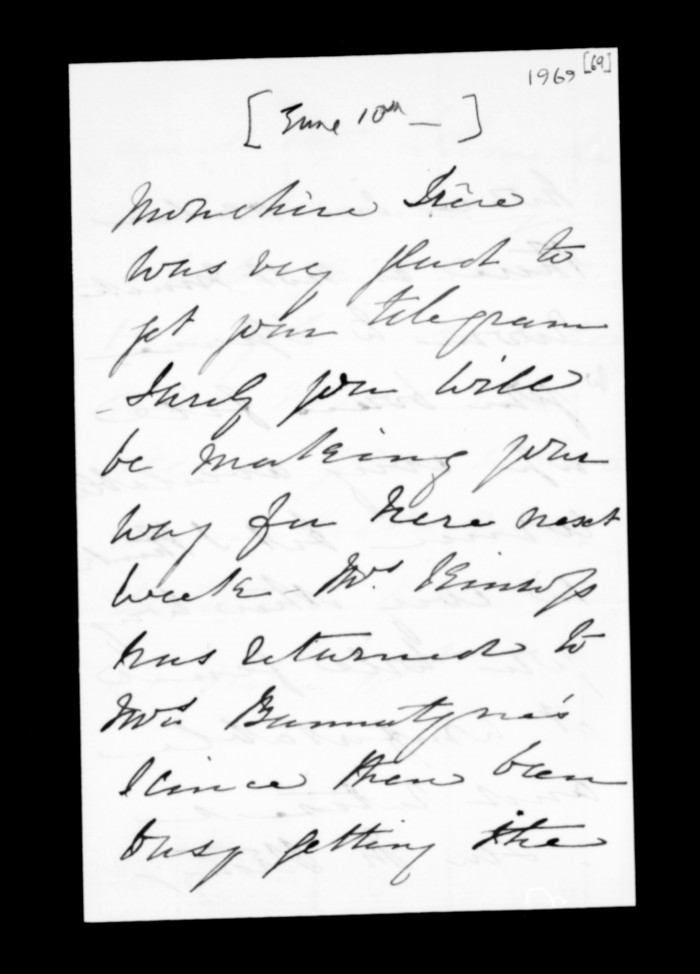 1969 [69]
[June 10th —]
Mon chère
was very glad to
get your telegram
Surely you will
be making your
way for here next
week - Mrs.
has returned to
Mrs Bannatyne's
I since then been
busy getting the